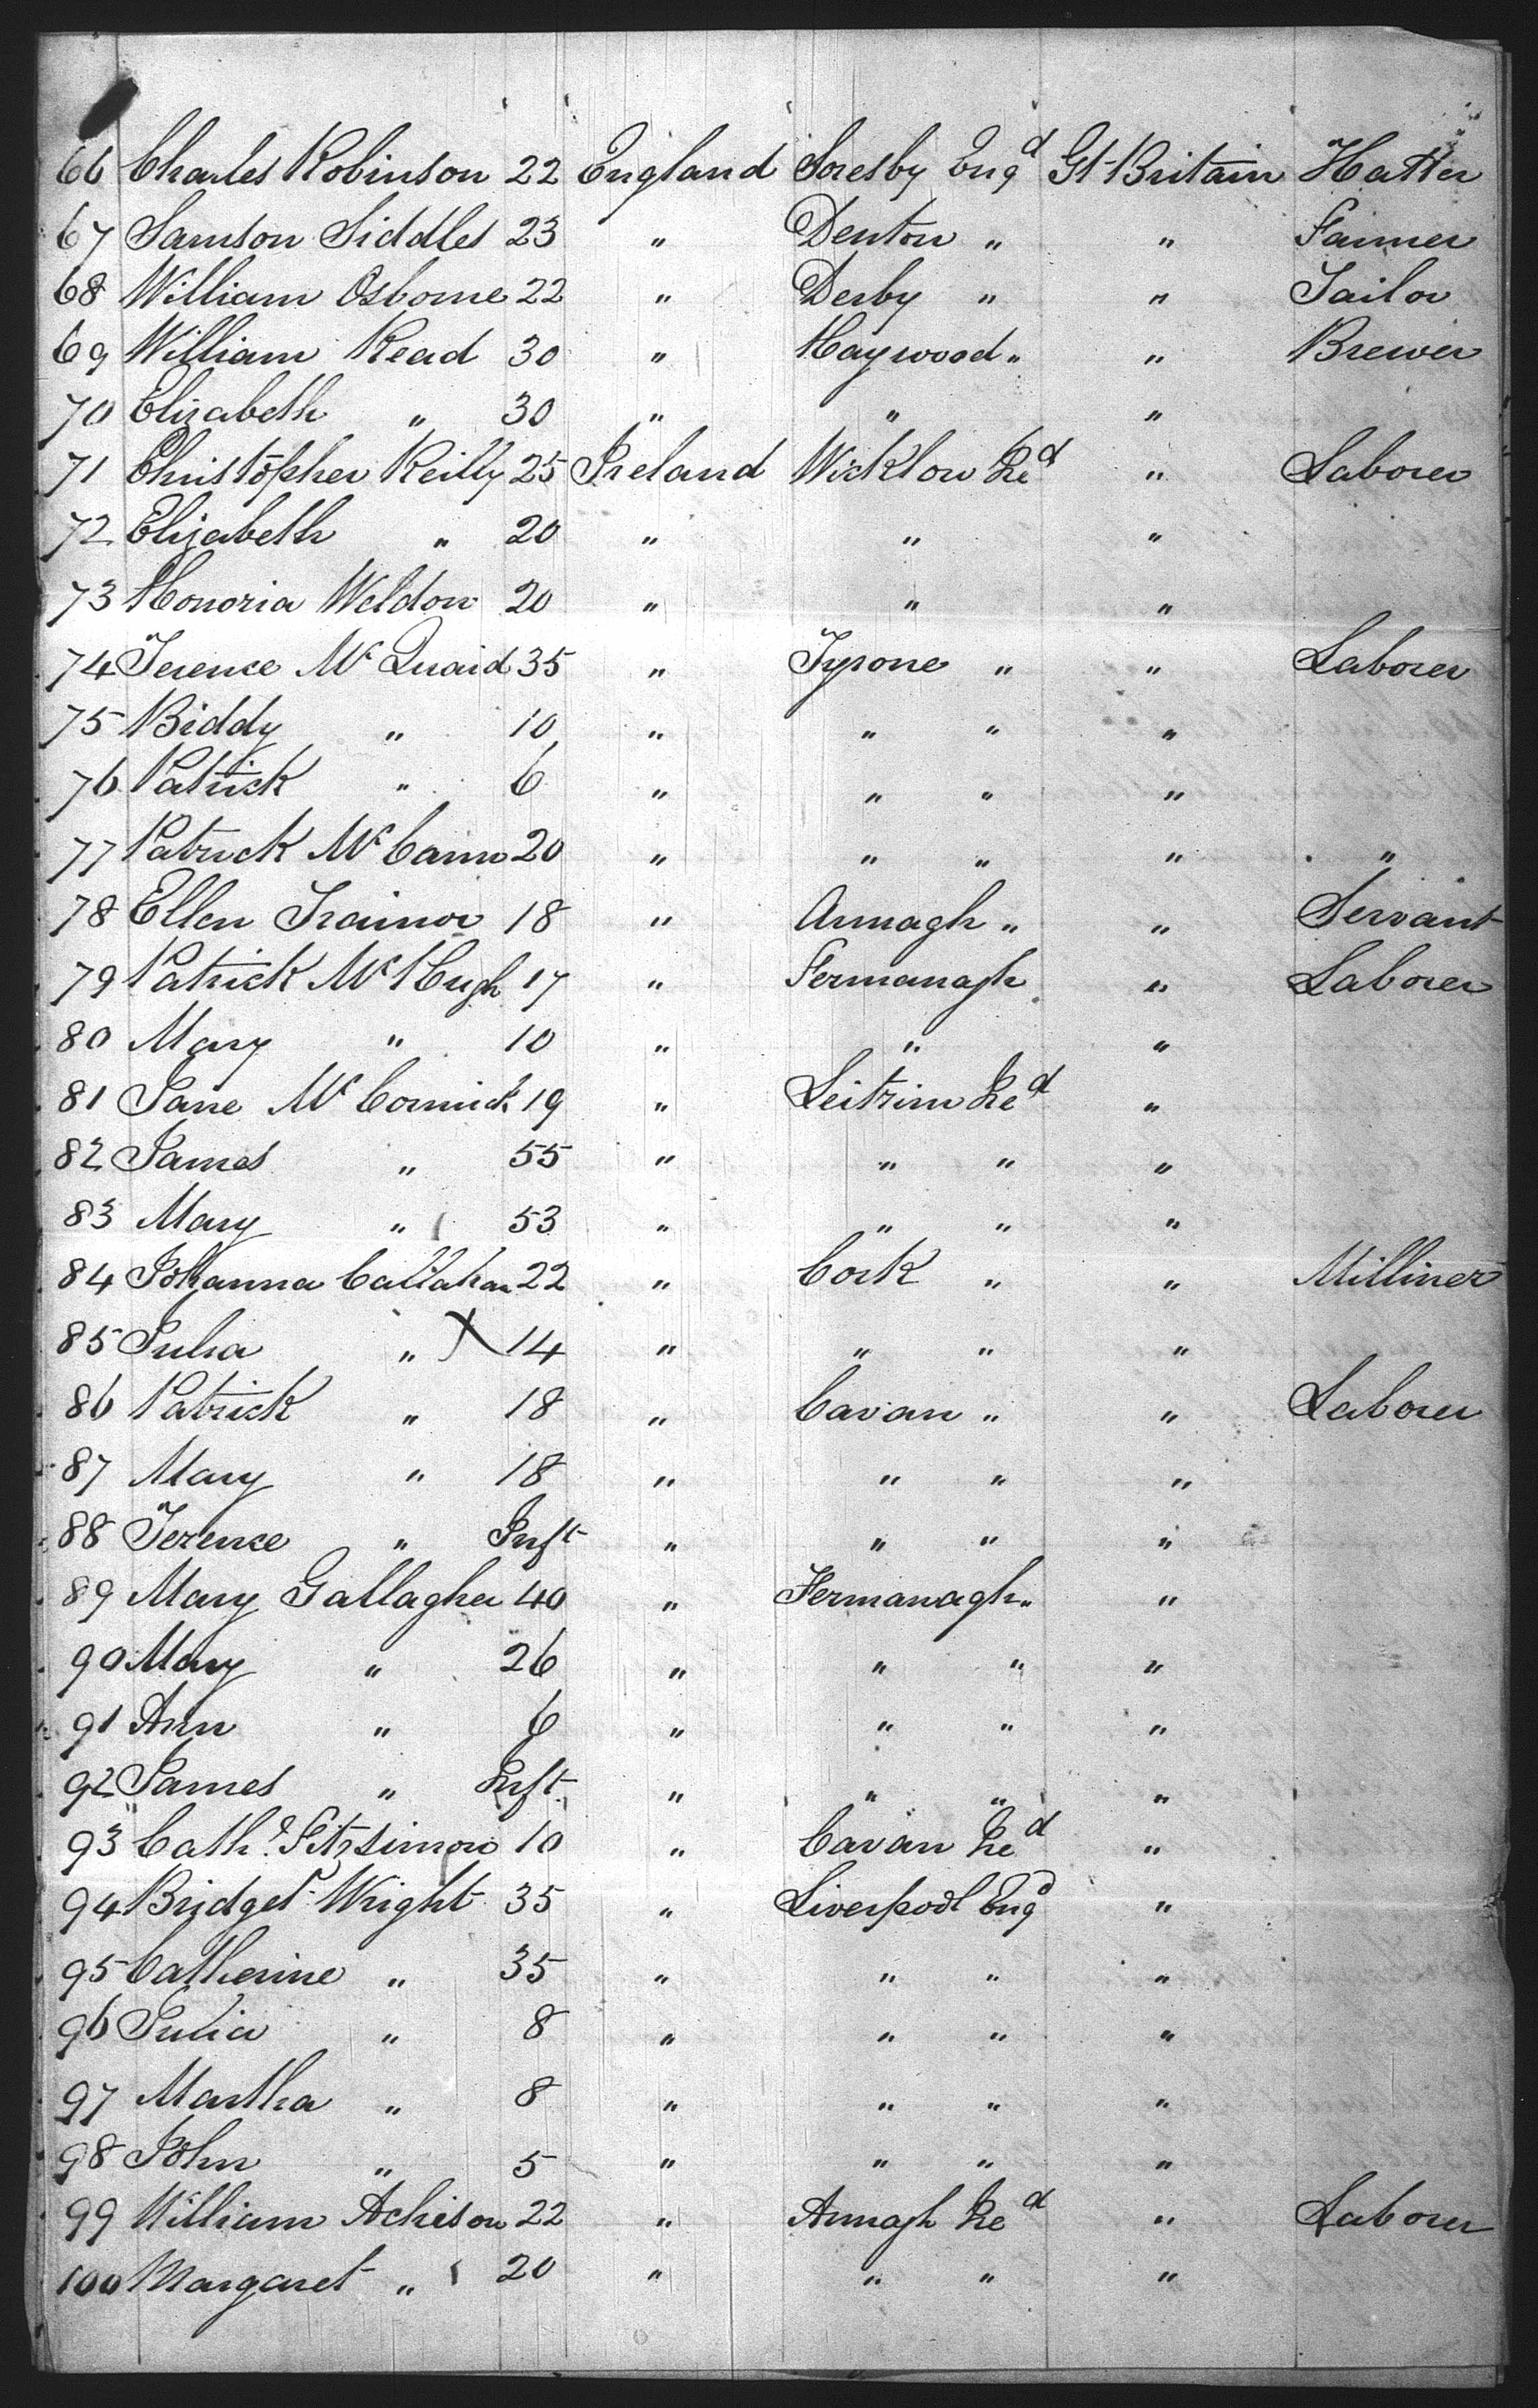 66 Charles Robinson 22 England Soresby Engd Gt Britain Hatter
67 Samson Siddles 23 " Denton " " Farmer
68 William Osborne 22 " Derby " " Tailor
69 William Read 30 " Haywood " " Brewer
70 Elizabeth " 30 " " "
71 Christopher Reilly 25 Ireland Wicklow Ired " Laborer
72 Elizabeth " 20 " " "
73 Honoria Weldon 20 " " "
74 Terence Mc Quaid 35 " Tyrone " " Laborer
75 Biddy " 10 " " " "
76 Patrick " 6 " " " "
77 Patrick Mc Cann 20 " " " " "
78 Ellen Trainor 18 " Armagh " " Servant
79 Patrick Mc Hugh 17 " Fermanagh " Laborer
80 Mary " 10 " " "
81 Jane Mc Cormick 19 " Leitrim Ired "
82 James " 55 " " " "
83 Mary " 53 " " " "
84 Johanna Callahan 22 " Cork " " Milliner
85 Julia " X 14 " " " "
86 Patrick " 18 " Cavan " " Laborer
87 Mary " 18 " " " "
88 Terence " Inft " " " "
89 Mary Gallagher 40 " Fermanagh " "
90 Mary " 26 " " " "
91 Ann " 6 " " " "
92 James " Inft " " " "
93 Cathe Fitzsimon 10 " Cavan Ired "
94 Bridget Wright 35 " Liverpool Engd "
95 Catherine " 35 " " " "
96 Julia " 8 " " " "
97 Martha " 8 " " " "
98 John " 5 " " " "
99 William Achison 22 " Armagh Ired " Laborer
100 Margaret " 20 " " " "